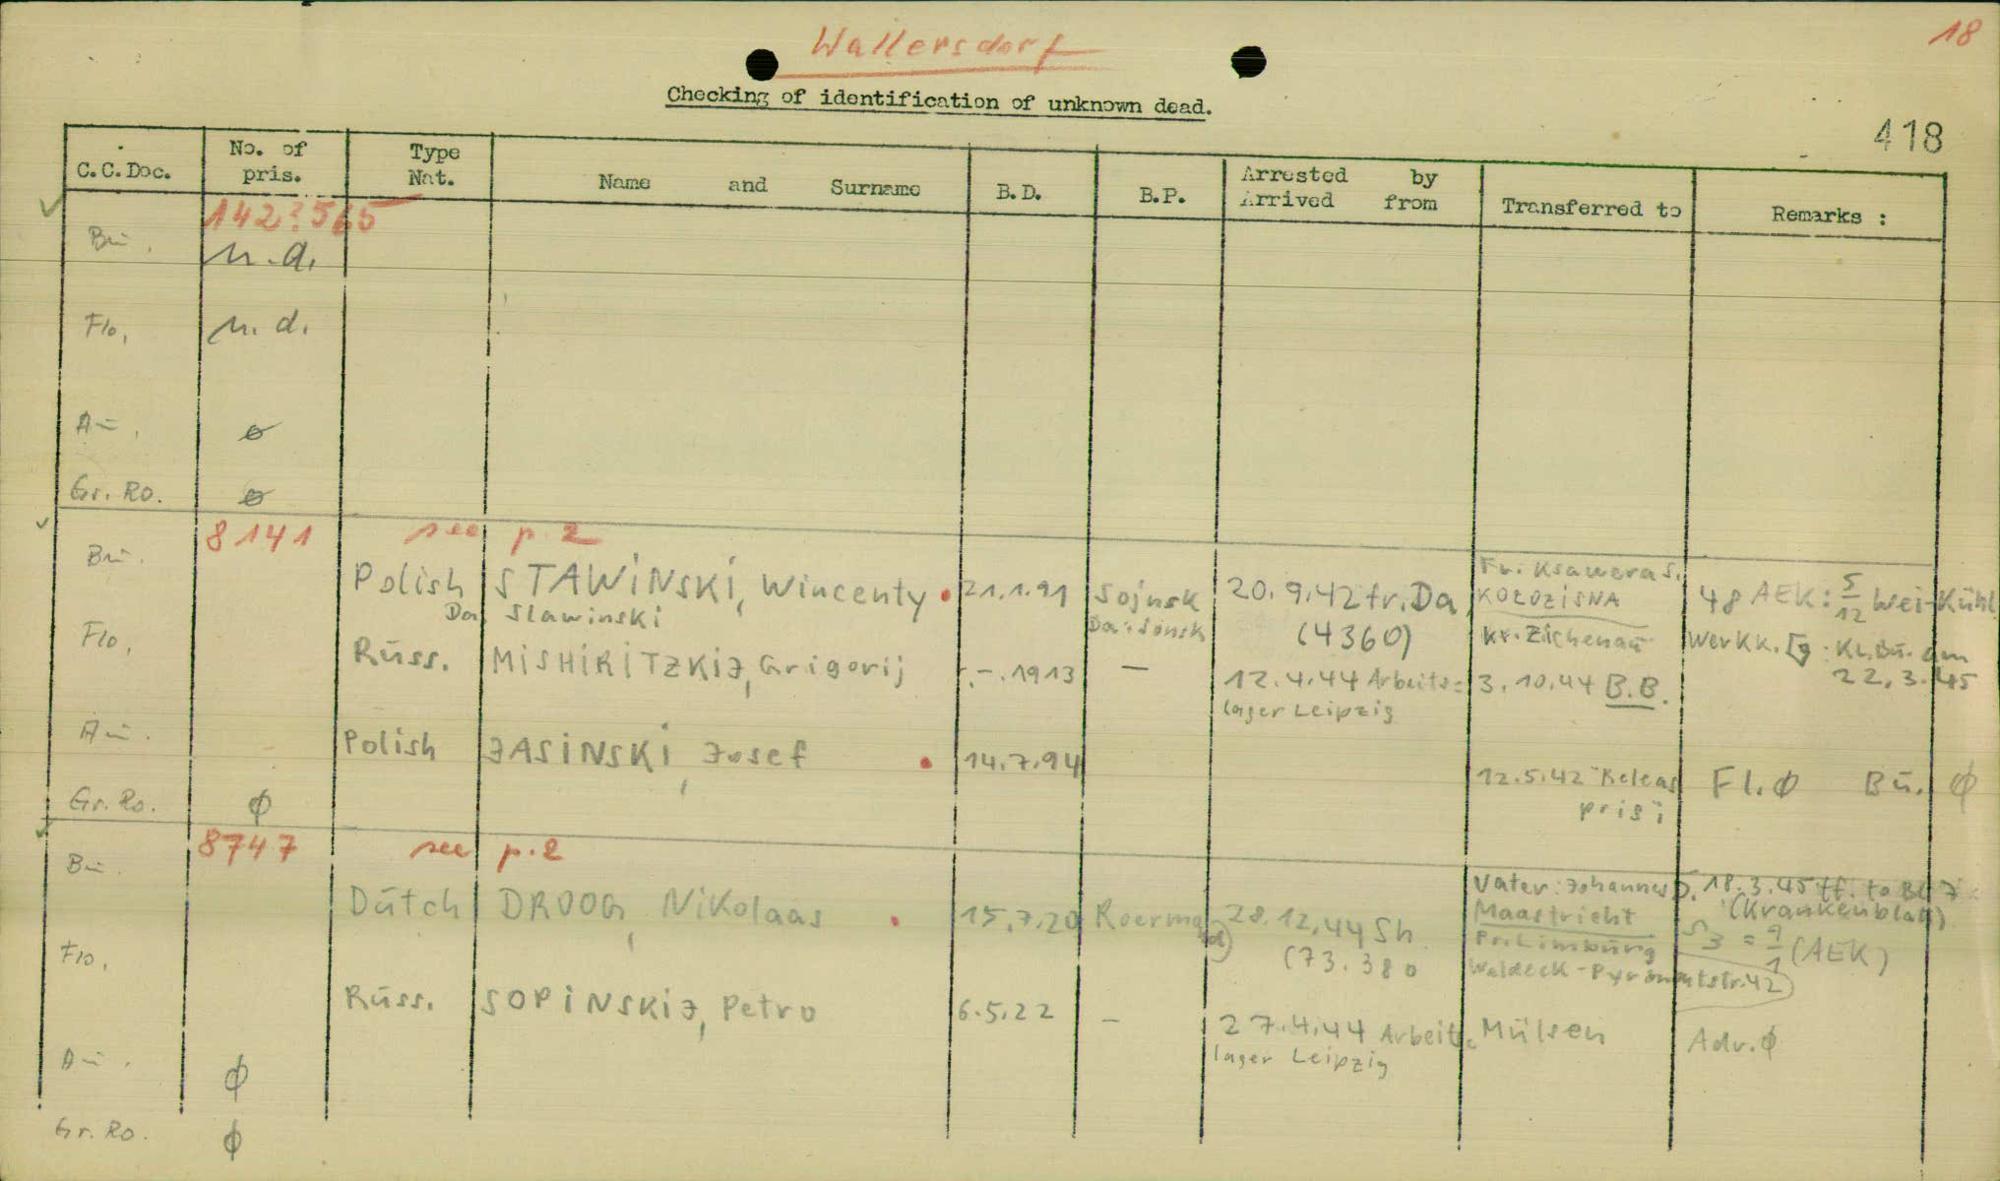 Wallersdorf
18
Checking of identification of unknown dead.
418
C.C.Doc. No. of pris. Type Nat. Name and Surname B.D. B.P. Arrested by Arrived from Transferred to Remarks :
142?565
Bu. n.d.
Flo. n.d.
Au. ø
Gr. Ro. ø
8141 see p. 2
Bu. Polish STAWINSKI, Wincenty 21.1.91 Sojnsk 20.9.42 tr. Da Fr. Ksawera S. 48 AEK: 5/12 Wei-Kühl
Da Slawinski Da: Sonsk (4360) KOŁOZISNA Kr. Zichenau Werkk. : KL.Bu. am 22.3.45
Flo. Russ. MISHIRITZKIJ, Grigorij -.-.1913 — 12.4.44 Arbeits= 3.10.44 B.B.
lager Leipzig
Au. Polish JASINSKI, Josef 14.7.94 12.5.42 Releas Fl. ø Bu. ø
Gr. Ro. ø
8747 see p. 2
Bu. Dutch DROOG, Nikolaas 15.7.20 Roermond 28.12.44 Sh Vater: Johannes D. 18.3.45 tf. to Bl 7
(73.380 Maastricht (Krankenblatt)
Pr. Limburg 9/1 (AEK)
Waldeck-Pyrmontstr. 42
Flo. Russ. SOPINSKIJ, Petro 6.5.22 — 27.4.44 Arbeits= Mülsen Adv. ø
lager Leipzig
Au. ø
Gr. Ro. ø